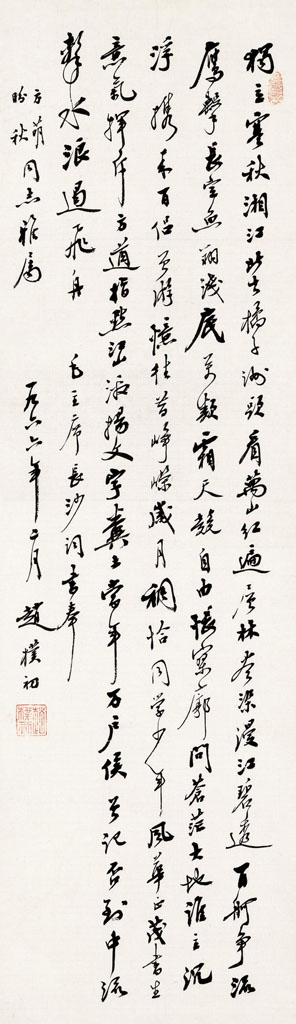 獨立寒秋湘江北去橘子洲頭看萬山紅遍層林盡染漫江碧透百舸爭流
鷹擊長空魚翔淺底萬類霜天競自由悵寥廓問蒼茫大地誰主沉
浮攜來百侶曾游憶往昔崢嶸歲月稠恰同學少年風華正茂書生
意氣揮斥方遒指點江山激揚文字糞土當年萬户侯曾記否到中流
擊水浪遏飛舟 毛主席長沙詞書奉
方萌
盼秋同志雅屬
一九六六年二月 趙樸初